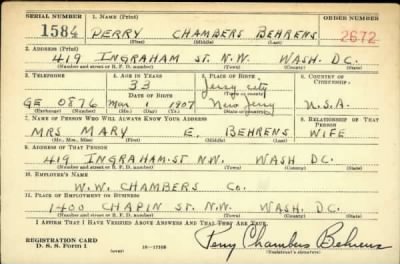 SERIAL NUMBER 1. NAME (Print) ORDER NUMBER
1584 PERRY CHAMBERS BEHRENS 2672
(First) (Middle) (Last)
2. ADDRESS (Print)
419 INGRAHAM ST. N.W. WASH. D.C.
(Number and street or R. F. D. number) (Town) (County) (State)
3. TELEPHONE 4. AGE IN YEARS 5. PLACE OF BIRTH 6. COUNTRY OF CITIZENSHIP
33 Jersey City
DATE OF BIRTH (Town or county)
GE 0876 Mar 1 1907 New Jersy U.S.A.
(Exchange) (Number) (Mo.) (Day) (Yr.) (State or country)
7. NAME OF PERSON WHO WILL ALWAYS KNOW YOUR ADDRESS 8. RELATIONSHIP OF THAT PERSON
MRS MARY E. BEHRENS WIFE
(Mr., Mrs., Miss) (First) (Middle) (Last)
9. ADDRESS OF THAT PERSON
419 INGRAHAM ST N.W. WASH DC.
(Number and street or R. F. D. number) (Town) (County) (State)
10. EMPLOYER'S NAME
W. W. CHAMBERS Co.
11. PLACE OF EMPLOYMENT OR BUSINESS
1400 CHAPIN ST. N.W. WASH. D.C.
(Number and street or R. F. D. number) (Town) (County) (State)
I AFFIRM THAT I HAVE VERIFIED ABOVE ANSWERS AND THAT THEY ARE TRUE.
REGISTRATION CARD Perry Chambers Behrens
D. S. S. Form 1 (over) 16—17105 (Registrant's signature)